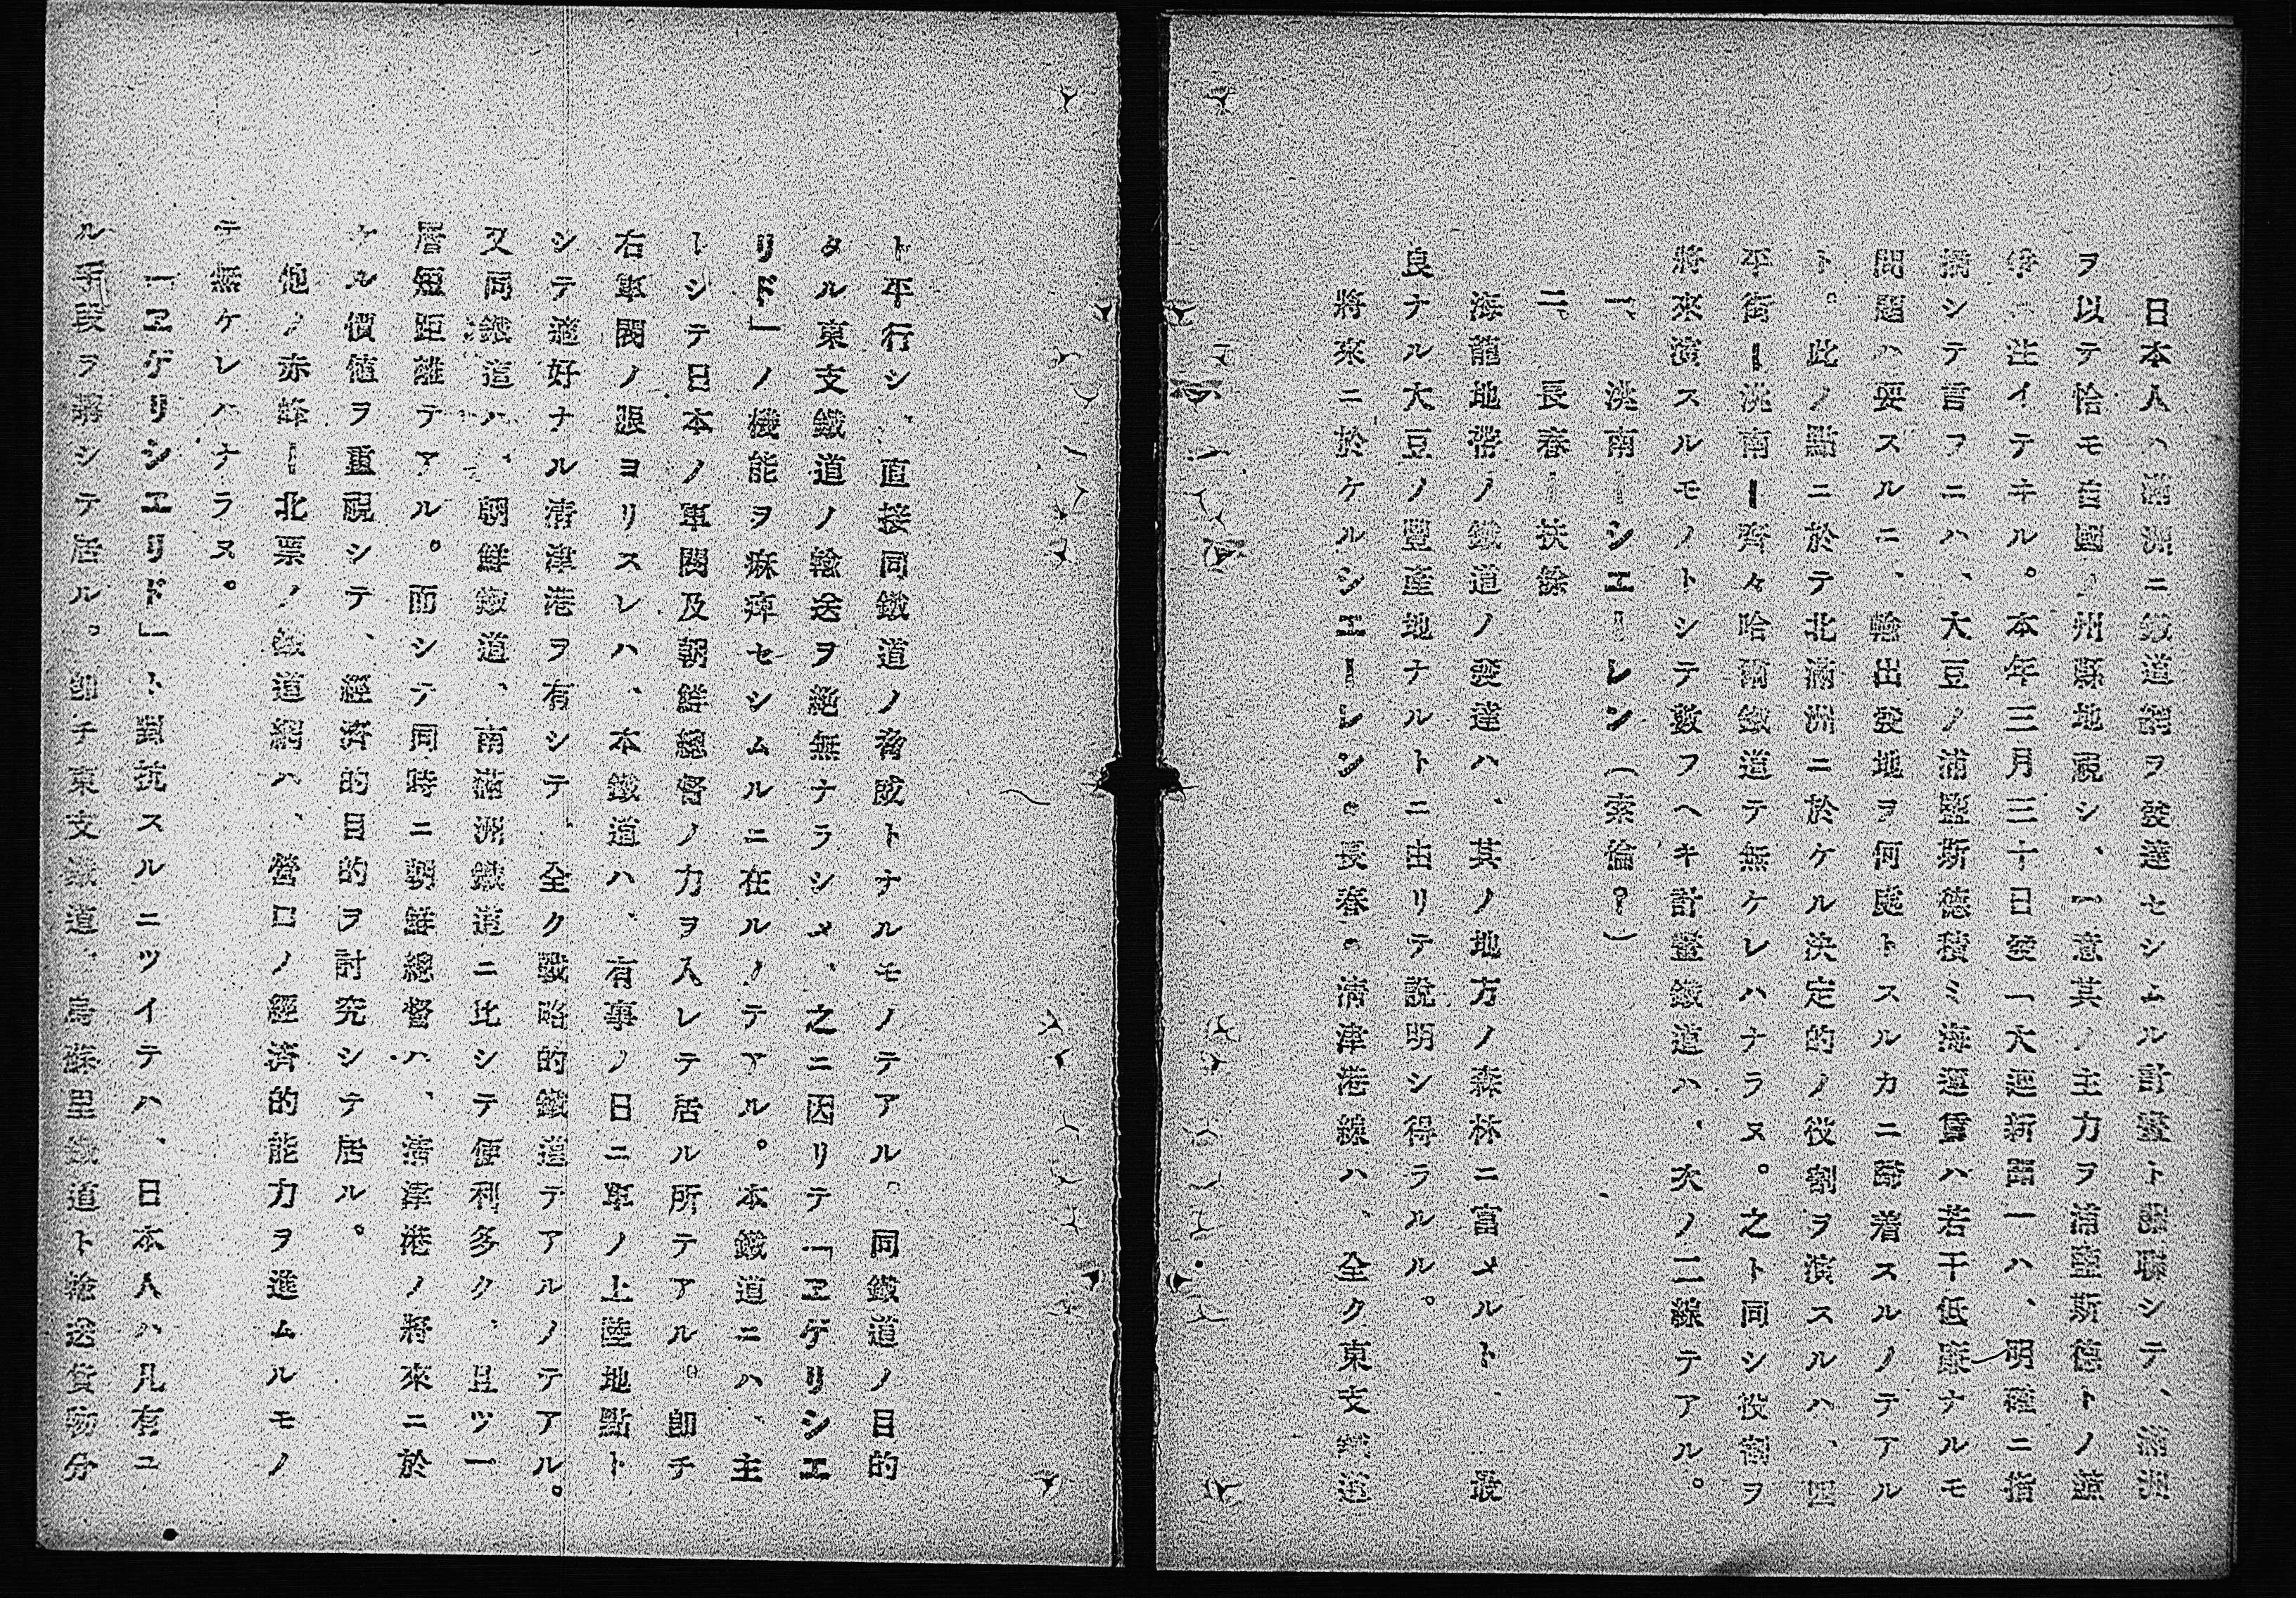 日本人ハ滿洲ニ鐵道網ヲ發達セシムル計畫ト關聯シテ、滿洲
ヲ以テ恰モ自國ノ州縣地視シ、一意其ノ主力ヲ浦鹽斯德トノ競
爭ニ注イテヰル。本年三月三十日發「大連新聞」ハ、明確ニ指
摘シテ言フニハ、大豆ノ浦鹽斯德積ミ海運賃ハ若干低廉ナルモ
問題ハ要スルニ、輸出發地ヲ何處トスルカニ歸着スルノテアル
ト。此ノ點ニ於テ北滿洲ニ於ケル決定的ノ役割ヲ演スルハ、四
平街ー洮南ー齊々哈爾鐵道テ無ケレハナラヌ。之ト同シ役割ヲ
將來演スルモノトシテ數フヘキ計畫鐵道ハ、次ノ二線テアル。
一、洮南ーシエーレン（索倫？）
二、長春ー扶餘
海龍地帶ノ鐵道ノ發達ハ、其ノ地方ノ森林ニ富メルト、最
良ナル大豆ノ豐產地ナルトニ由リテ說明シ得ラルル。
將來ニ於ケルシエーレン。長春。清津港線ハ、全ク東支鐵道
ト平行シ、直接同鐵道ノ脅威トナルモノテアル。同鐵道ノ目的
タル東支鐵道ノ輸送ヲ絕無ナラシメ、之ニ因リテ「ヱゲリシエ
リド」ノ機能ヲ痳痺セシムルニ在ルノテアル。本鐵道ニハ、主
トシテ日本ノ軍閥及朝鮮總督ノ力ヲ入レテ居ル所テアル。卽チ
右軍閥ノ眼ヨリスレハ、本鐵道ハ、有事ノ日ニ軍ノ上陸地點ト
シテ適好ナル清津港ヲ有シテ、全ク戰略的鐵道テアルノテアル。
又同鐵道ハ、朝鮮鐵道、南滿洲鐵道ニ比シテ便利多ク、且ツ一
層短距離テアル。而シテ同時ニ朝鮮總督ハ、清津港ノ將來ニ於
ケル價値ヲ重視シテ、經濟的目的ヲ討究シテ居ル。
他ノ赤峰ー北票ノ鐵道網ハ、營口ノ經濟的能力ヲ進ムルモノ
テ無ケレハナラヌ。
「ヱゲリシエリド」ト對抗スルニツイテハ、日本人ハ凡有ユ
ル手段ヲ講シテ居ル。卽チ東支鐵道、烏蘇里鐵道ト輸送貨物分